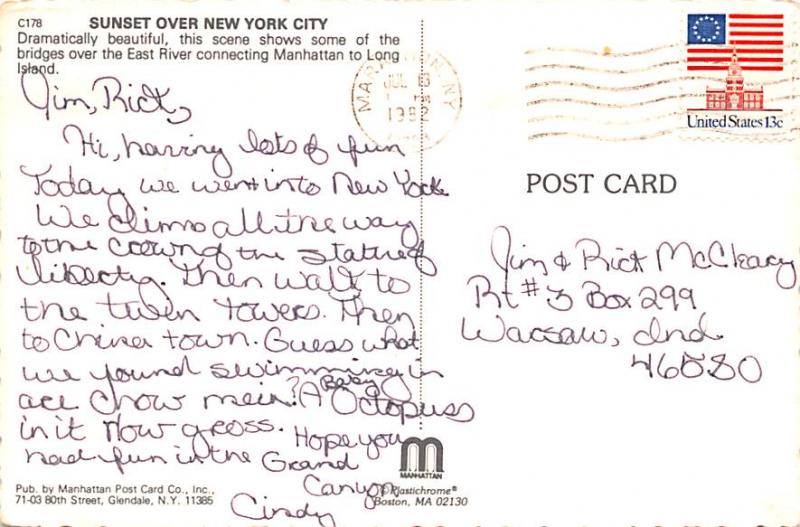 C178 SUNSET OVER NEW YORK CITY
Dramatically beautiful, this scene shows some of the
bridges over the East River connecting Manhattan to Long
Island.
Jim, Rick,
Hi, having lots of fun
Today we went into New York
We climb all the way
to the crown of the statue of
liberty. Then walk to
the twin towers. Then
to China town. Guess what
we found swimming in
are chow mein? A Baby Octopuss
in it now gross. Hope you
had fun in the Grand
Canyon
Cindy
Pub. by Manhattan Post Card Co., Inc.,
71-03 80th Street, Glendale, N.Y. 11385
MANHATTAN
©Plastichrome®
Boston, MA 02130
JUL 13
PM
1982
N.Y
United States 13c
POST CARD
Jim & Rick McCleary
Rt #3 Box 299
Warsaw, Ind
46580